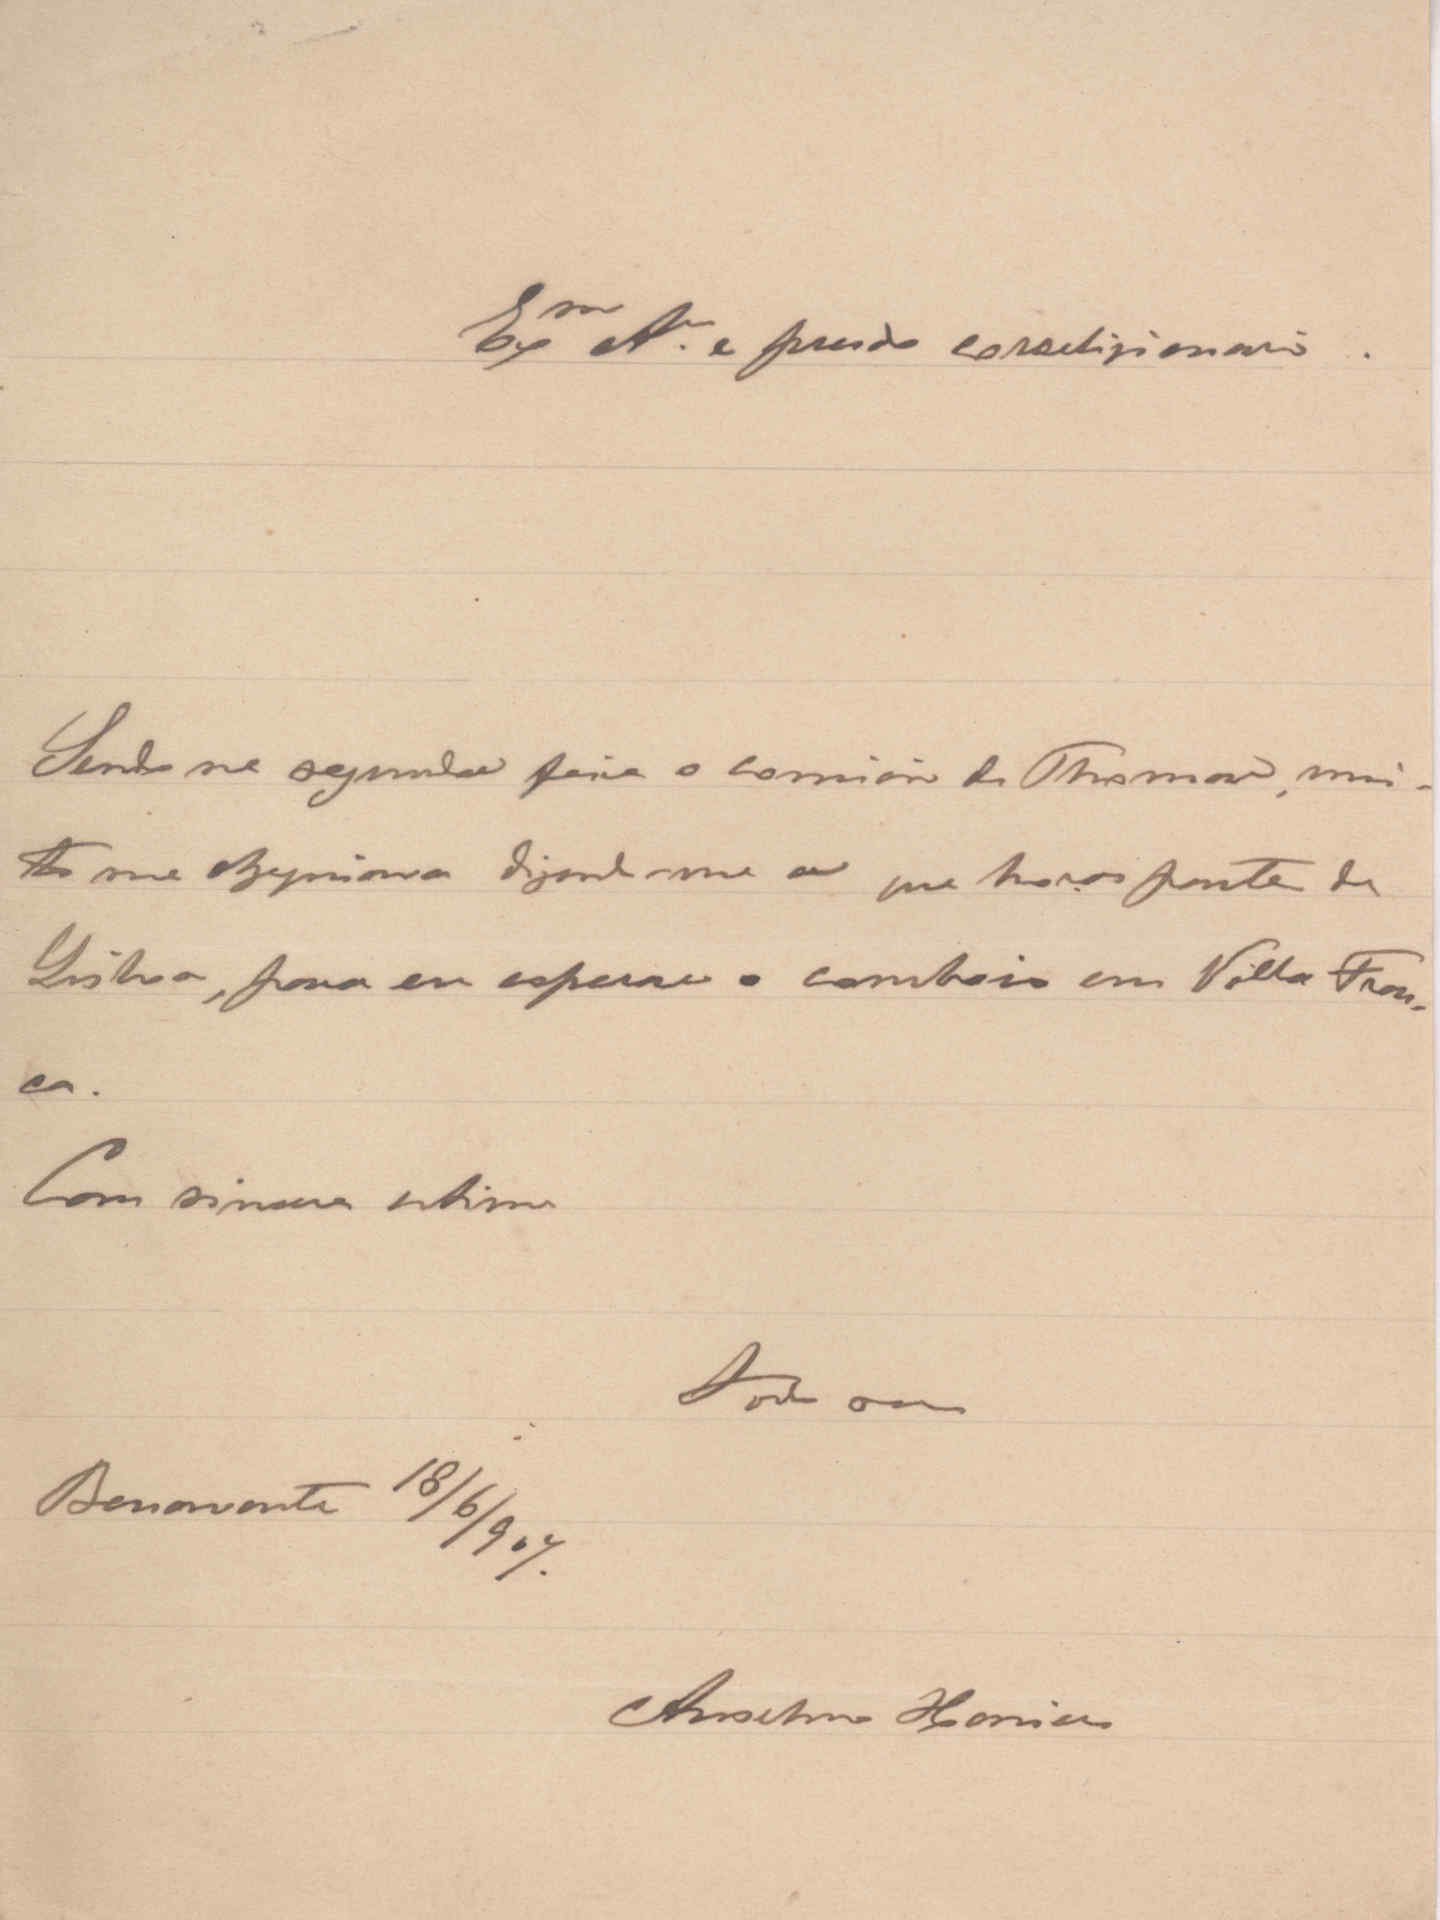 Exmo Amo. e presado correligionario.
Sendo na segunda feira o comicio de Thomar, mui-
to me obsequiava dizendo-me a que horas parte de
Lisboa, para eu esperar o comboio em Villa Fran-
ca.
Com sincera estima
Todo seu
Benavente 18/6/907.
Anselmo Xavier